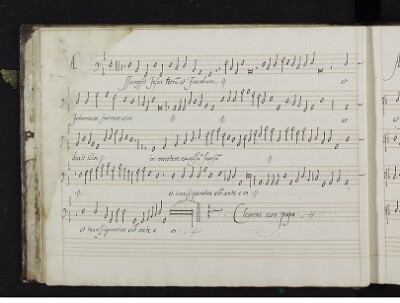 Assumpsit Jesus Petrum et Jacobum ij
Johannem fratrem eius ij ij
duxit illos in montem excelsum seorsum ij
ij et transfiguratus est ante e os ij
et transfiguratus est ante e os ij Clemens non papa